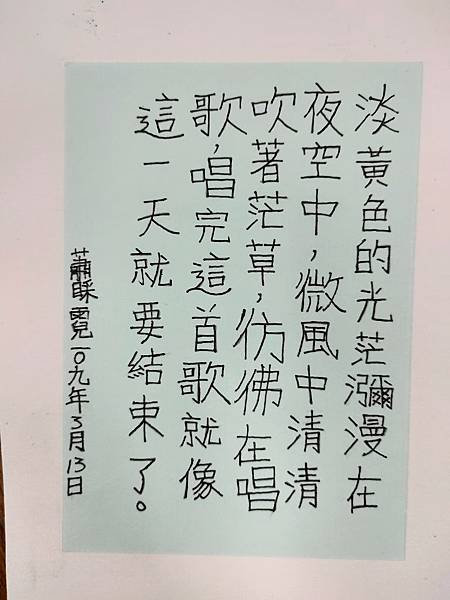 淡黃色的光茫瀰漫在
夜空中，微風中清清
吹著茫草，彷彿在唱
歌，唱完這首歌就像
這一天就要結束了。
蕭睬霓一〇九年3月13日